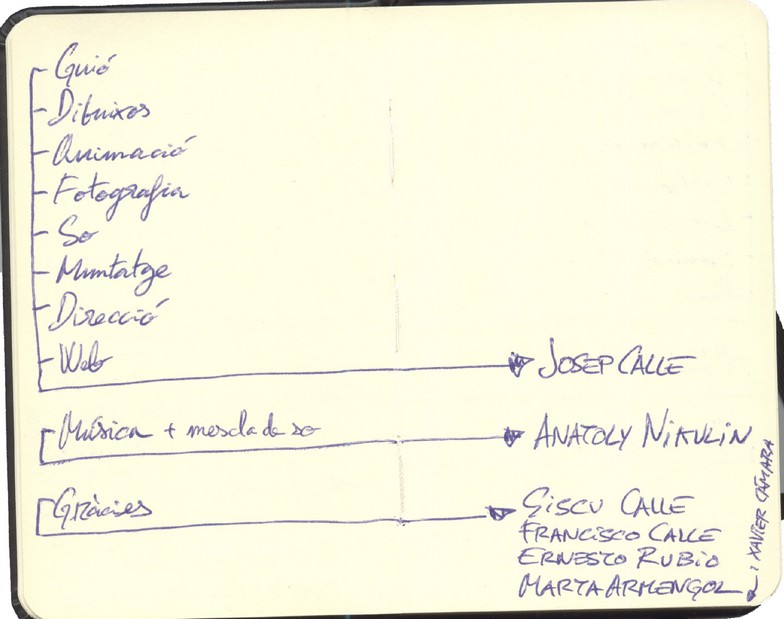 Guió
Dibuixos
Animació
Fotografia
So
Muntatge
Direcció
Web
JOSEP CALLE
Música + mescla de so
ANATOLY NIKULIN
Gràcies
GISCU CALLE
FRANCISCO CALLE
ERNESTO RUBIO
MARTA ARMENGOL
i XAVIER CÁMARA